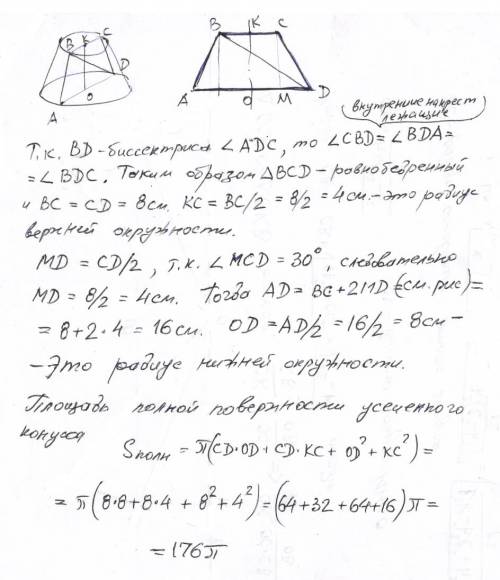 B K C
D
A O
B K C
A O M D
внутренние накрест
лежащие
Т.к. BD-биссектриса ∠ADC, то ∠CBD=∠BDA=
=∠BDC. Таким образом ΔBCD-равнобедренный
и BC = CD = 8см. KC = BC/2 = 8/2 = 4см.-это радиус
верхней окружности.
MD = CD/2, т.к. ∠MCD = 30°, следовательно
MD = 8/2 = 4см. Тогда AD = BC+2MD (см. рис)=
= 8+2·4 = 16см. OD = AD/2 = 16/2 = 8см-
-Это радиус нижней окружности.
Площадь полной поверхности усеченного
конуса Sполн = π(CD·OD + CD·KC + OD² + KC²) =
= π(8·8+8·4 + 8² + 4²) = (64+32+64+16)π =
= 176π